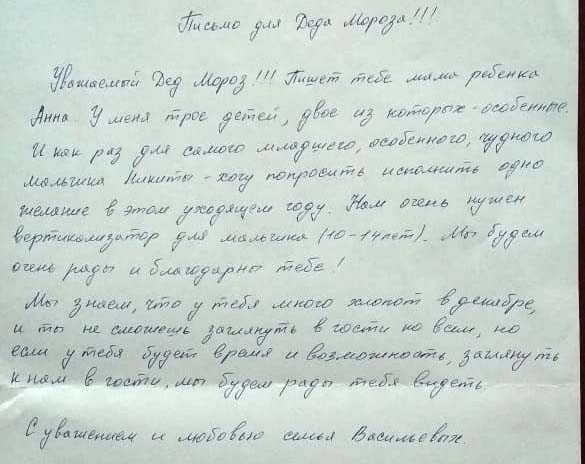 Письмо для Деда Мороза!!!
Уважаемый Дед Мороз!!! Пишет тебе мама ребенка
Анна. У меня трое детей, двое из которых - особенные.
И как раз для самого младшего, особенного, чудного
мальчика Никиты - хочу попросить исполнить одно
желание в этом уходящем году. Нам очень нужен
вертикализатор для мальчика (10-14 лет). Мы будем
очень рады и благодарны тебе!
Мы знаем, что у тебя много хлопот в декабре,
и ты не сможешь заглянуть в гости ко всем, но
если у тебя будет время и возможность, заглянуть
к нам в гости, мы будем рады тебя видеть.
С уважением и любовью семья Васильевых.